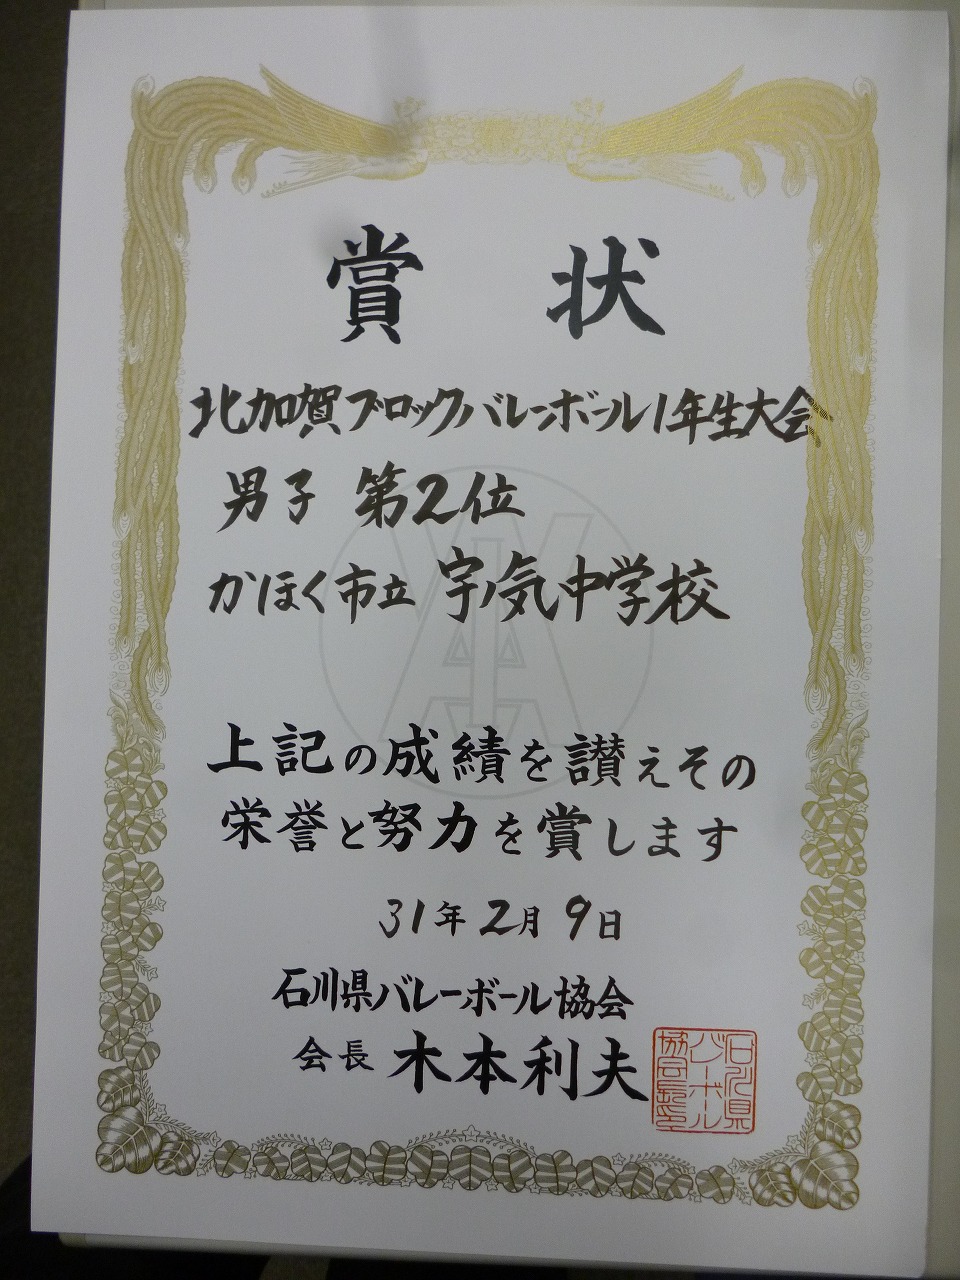 賞状
北加賀ブロックバレーボール1年生大会
男子 第2位
かほく市立 宇ノ気中学校
上記の成績を讃えその
栄誉と努力を賞します
31年2月9日
石川県バレーボール協会
会長 木本利夫
石川県
バレーボール
協会長印